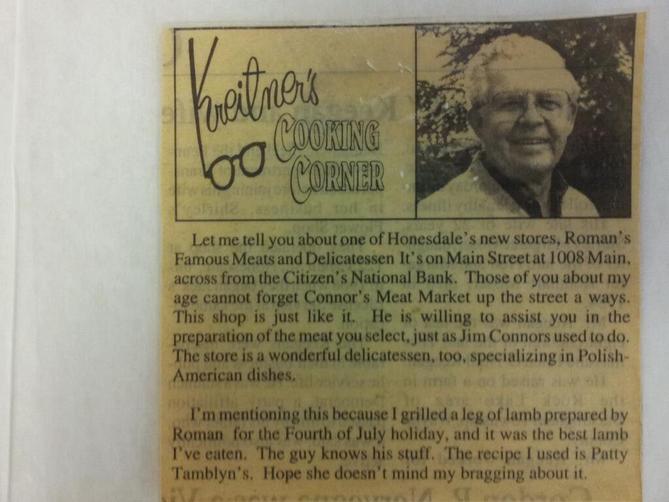 Kreitner's
COOKING
CORNER
Let me tell you about one of Honesdale's new stores, Roman's
Famous Meats and Delicatessen It's on Main Street at 1008 Main,
across from the Citizen's National Bank. Those of you about my
age cannot forget Connor's Meat Market up the street a ways.
This shop is just like it. He is willing to assist you in the
preparation of the meat you select, just as Jim Connors used to do.
The store is a wonderful delicatessen, too, specializing in Polish-
American dishes.
I'm mentioning this because I grilled a leg of lamb prepared by
Roman for the Fourth of July holiday, and it was the best lamb
I've eaten. The guy knows his stuff. The recipe I used is Patty
Tamblyn's. Hope she doesn't mind my bragging about it.